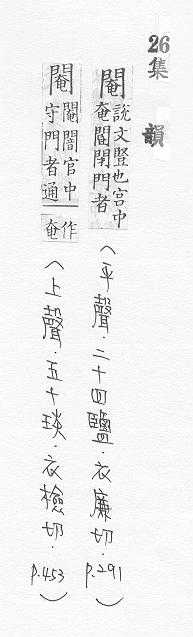 26集韻
閹 說文豎也宮中奄閽閉門者（平聲．二十四鹽．衣廉切．p.291）
閹 閹闇官中守門者通作奄（上聲．五十琰．衣檢切．p.453）